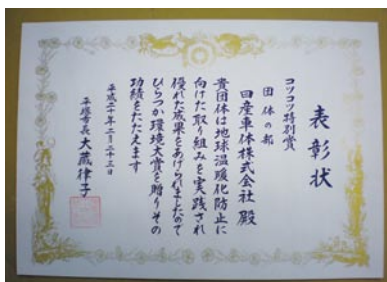 表彰状
コツコツ特別賞
団体の部
日産車体株式会社 殿
貴団体は地球温暖化防止に
向けた取り組みを実践され
優れた成果をあげられましたので
ひらつか環境大賞を贈りその
功績をたたえます
平成二十年二月二十三日
平塚市長 大蔵律子